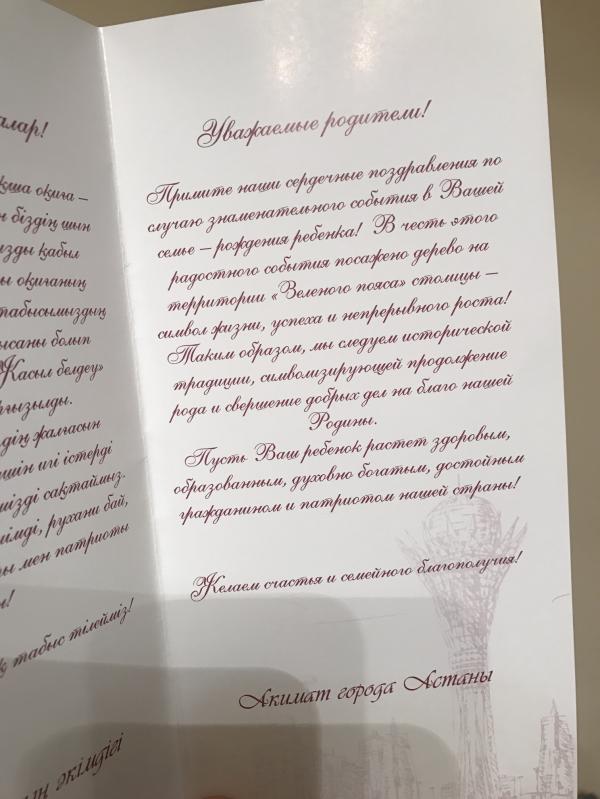 алар!
оқиға –
біздің шын
қабыл
оқиғаның
табысымыздың
болып
Жасыл белдеу»
жалғасын
игі істерді
сақтаймыз.
рухани бай,
мен патриоты
табыс тілейміз!
әкімдігі
Уважаемые родители!
Примите наши сердечные поздравления по
случаю знаменательного события в Вашей
семье – рождения ребенка! В честь этого
радостного события посажено дерево на
территории «Зеленого пояса» столицы –
символ жизни, успеха и непрерывного роста!
Таким образом, мы следуем исторической
традиции, символизирующей продолжение
рода и свершение добрых дел на благо нашей
Родины.
Пусть Ваш ребенок растет здоровым,
образованным, духовно богатым, достойным
гражданином и патриотом нашей страны!
Желаем счастья и семейного благополучия!
Акимат города Астаны